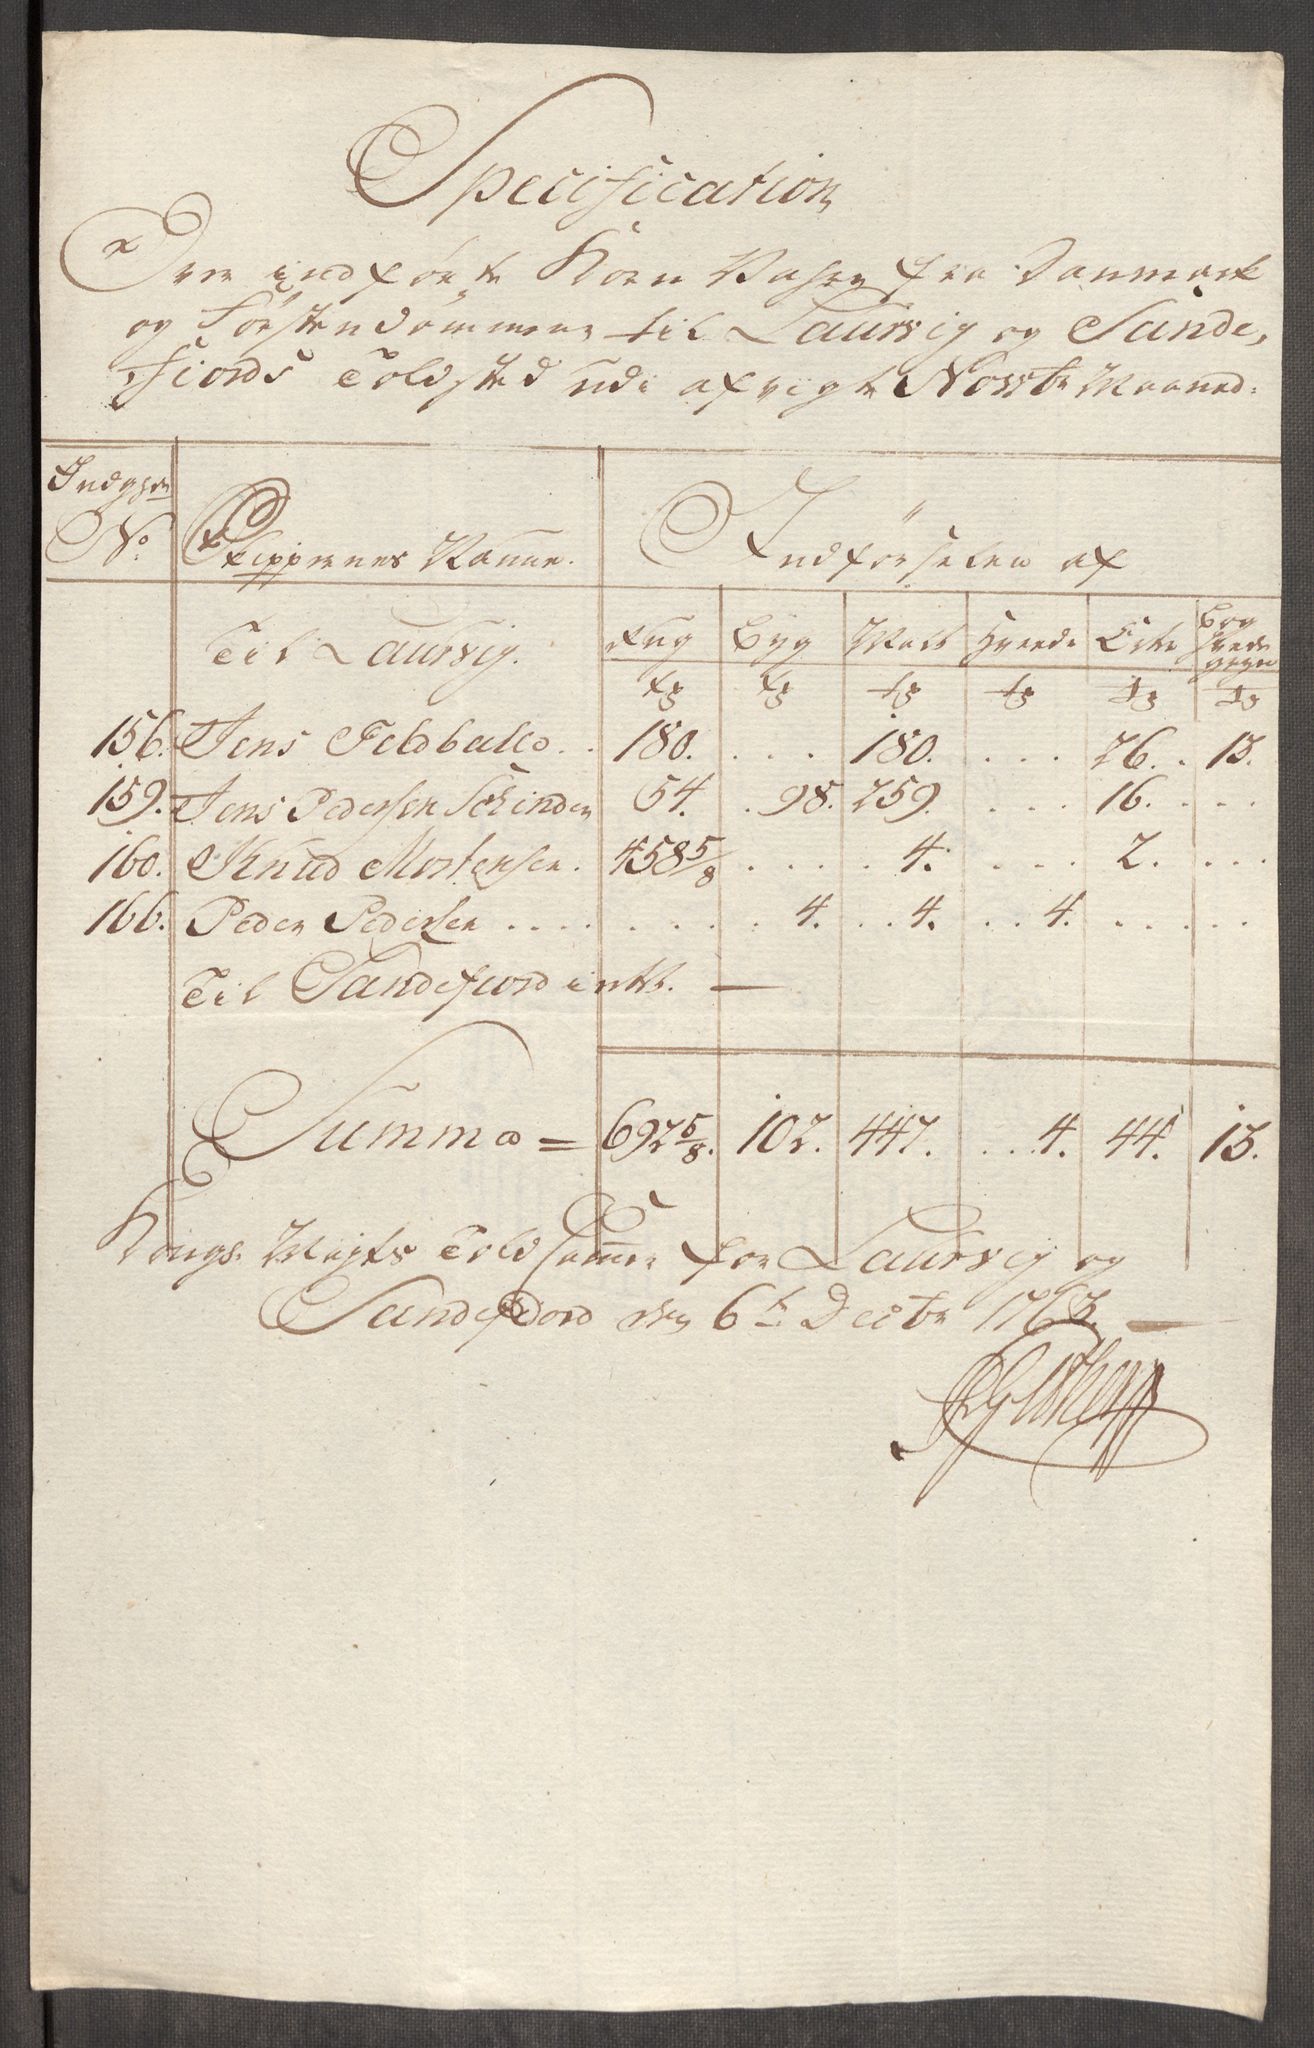 Specification
Over indförte Korn Vahre fra Danmark
og Förstendömmene til Laurvig og Sande,
fiords Toldsted udi afvigte Novbr Maaned.
Indgaaende
No. Skippernes Nafne. Indförselen af
Til Laurvig. Rug Byg Malt Hvede Erter Bog hvede gryn
tr tr tr tr tr tr
156. Jens Feldballe . . 180. . . . 180. . . . 26. . 13.
159. Jens Pedersen 54. . 98. 259. . . . 16. . . .
160. Knud Mortensen . 458 5/8 . . . . 4. . . . 2. . . .
166. Peder Pedersen . . . . . . . . 4. . . 4. . . 4. . . . . .
Til Sandefiord intet. —
Summa = 692 5/8. 102. 447. . . 4. 44. 13.
Kongs. Mayts Told Cammer for Laurvig og
Sandefiord den 6te Decbr 1763. —